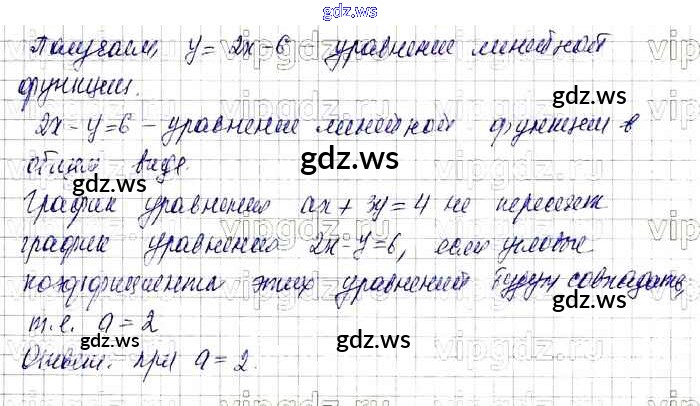 gdz.ws
Получаем, y = 2x - 6 уравнение линейной
функции.
gdz.ws
2x - y = 6 - уравнение линейной функции в
общем виде.
gdz.ws
gdz.ws
График уравнения ax + 3y = 4 не пересечет
график уравнения 2x - y = 6, если угловые
gdz.ws
коэффициента этих уравнений будут совпадать,
gdz.ws
т.е. a = 2
gdz.ws
Ответ: при a = 2.
gdz.ws
vipgdz.ws